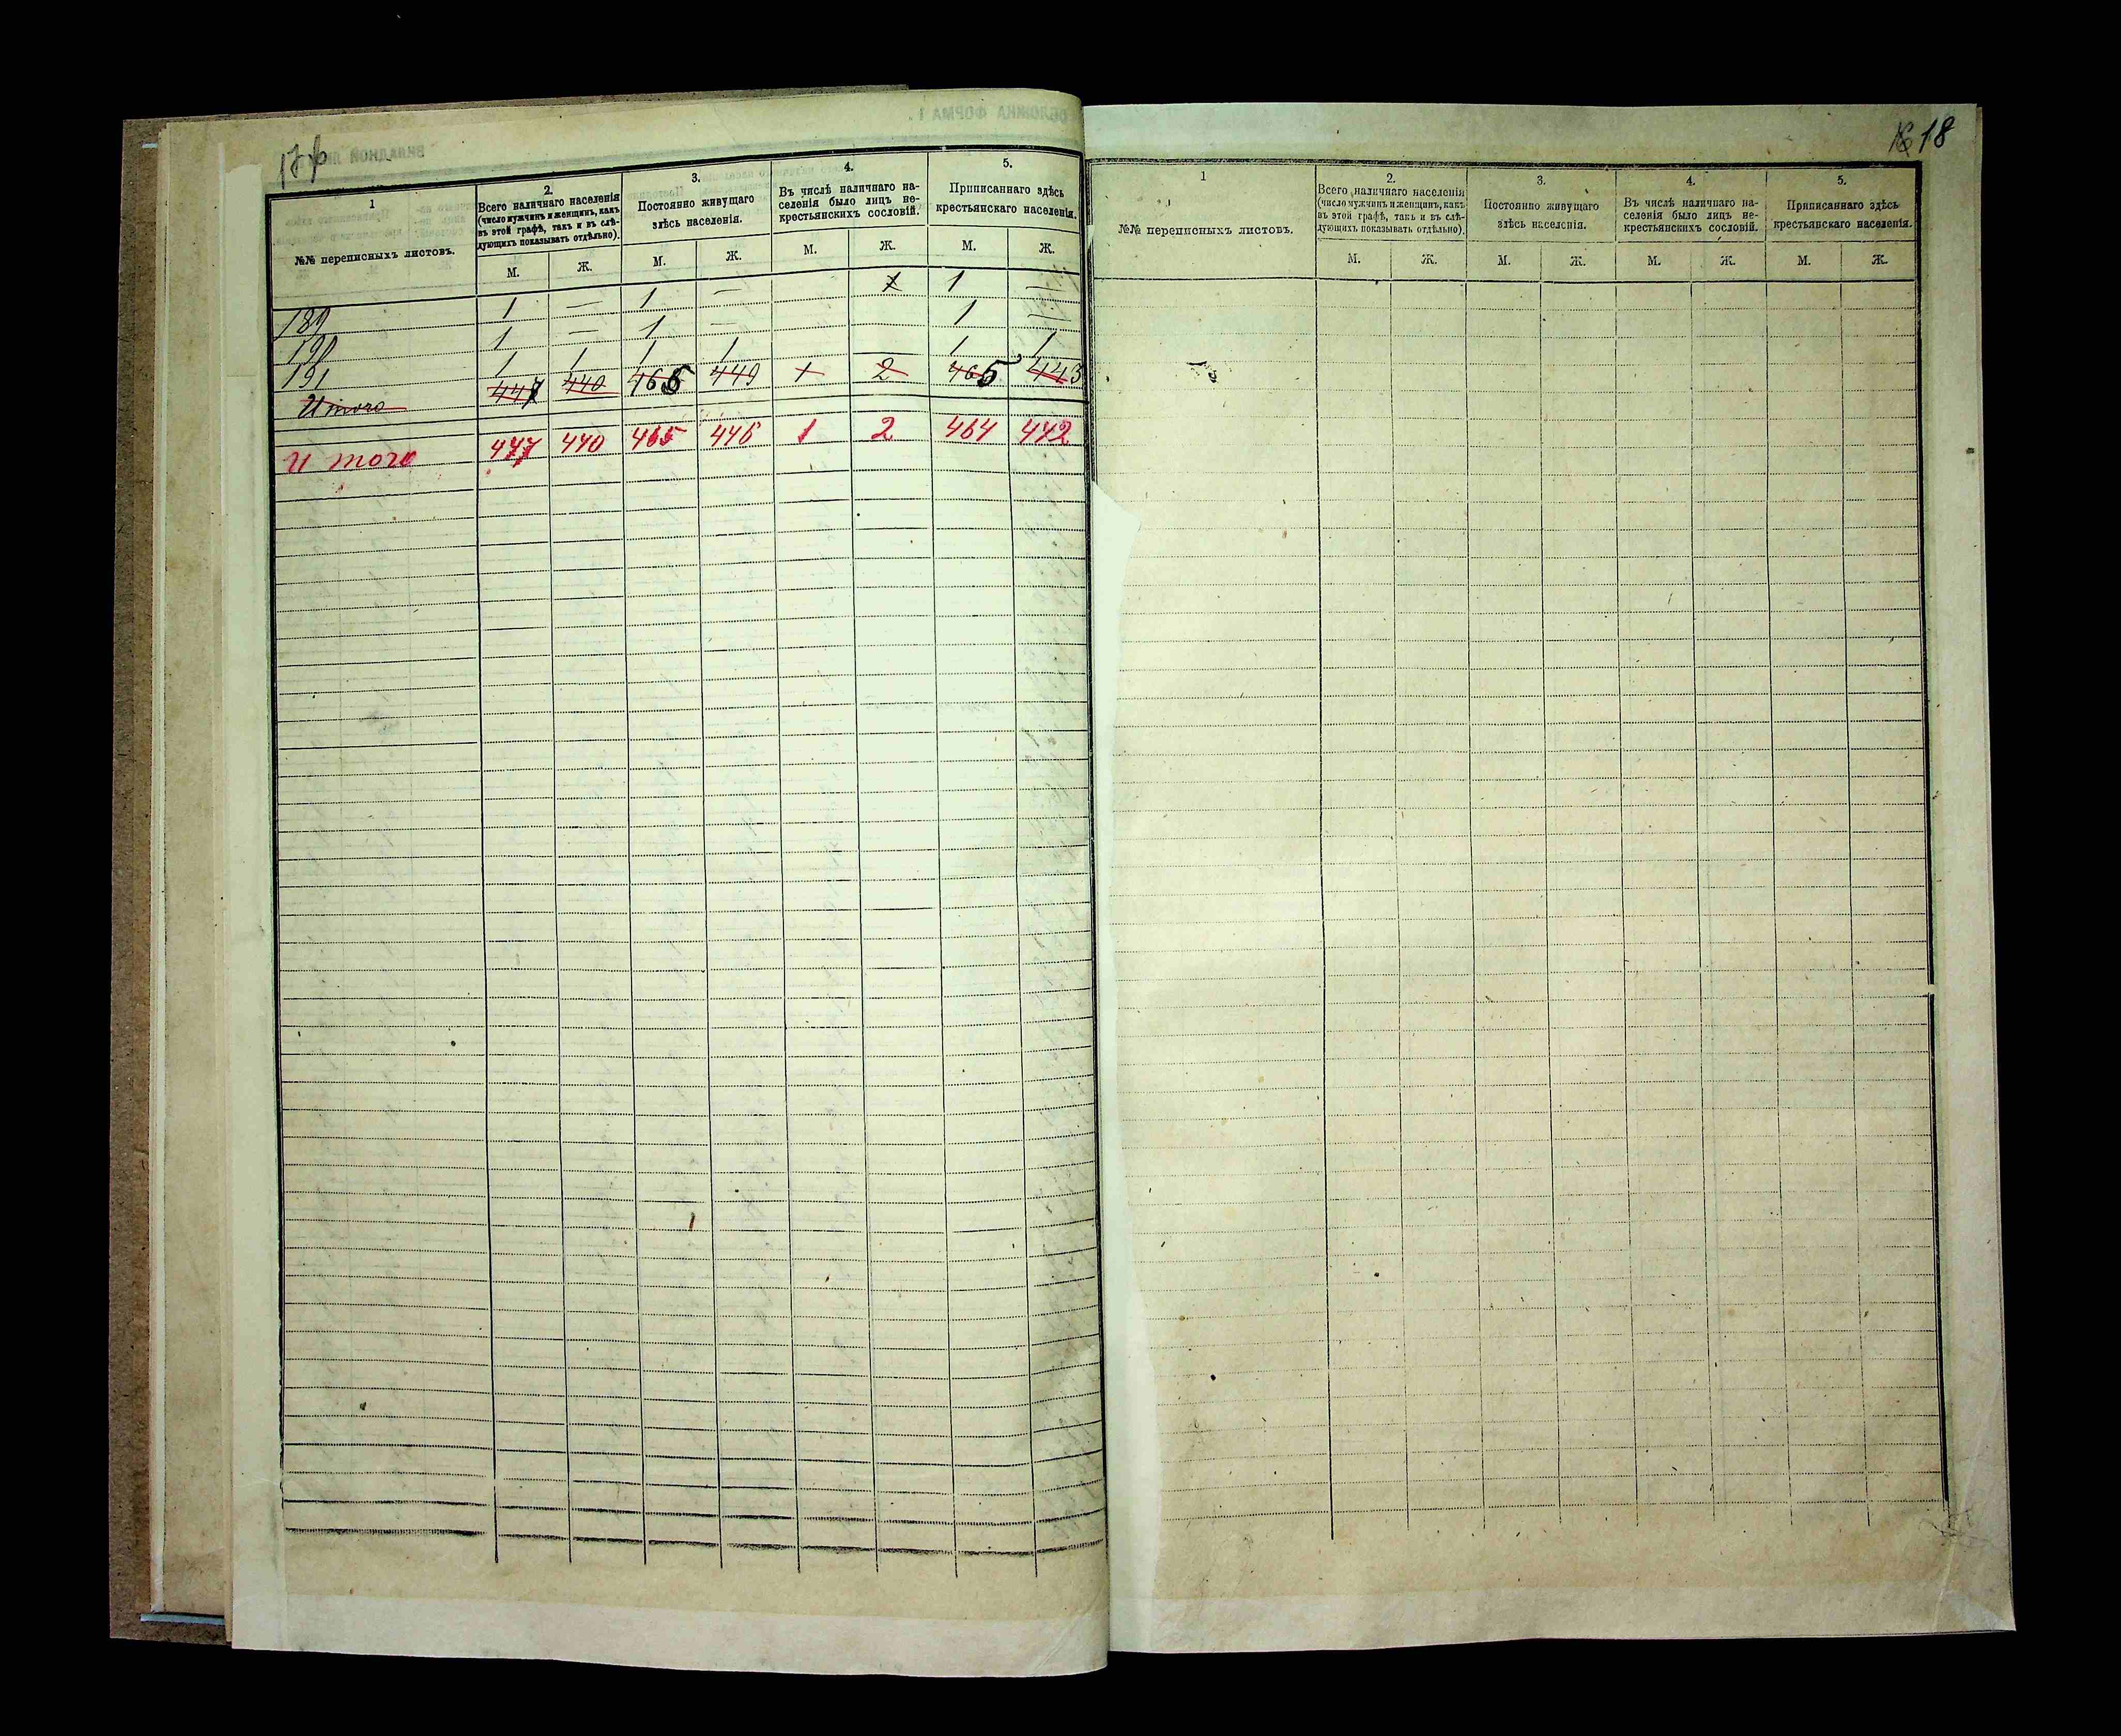 18
1
№№ переписныхъ листовъ.
2.
Всего наличнаго населенія
(число мужчинъ и женщинъ, какъ
въ этой графѣ, такъ и въ слѣ-
дующихъ показывать отдѣльно).
3.
Постоянно живущаго
здѣсь населенія.
4.
Въ числѣ наличнаго на-
селенія было лицъ не-
крестьянскихъ сословій.
5.
Приписаннаго здѣсь
крестьянскаго населенія.
М. Ж. М. Ж. М. Ж. М. Ж.
189 1 — 1 — 1 1 —
190 1 — 1 — 1 —
191 1 1 1 1 1 1
Итого 447 440 465 449 1 2 465 443
Итого 447 440 465 446 1 2 464 442
1
№№ переписныхъ листовъ.
2.
Всего наличнаго населенія
(число мужчинъ и женщинъ, какъ
въ этой графѣ, такъ и въ слѣ-
дующихъ показывать отдѣльно).
3.
Постоянно живущаго
здѣсь населенія.
4.
Въ числѣ наличнаго на-
селенія было лицъ не-
крестьянскихъ сословій.
5.
Приписаннаго здѣсь
крестьянскаго населенія.
М. Ж. М. Ж. М. Ж. М. Ж.